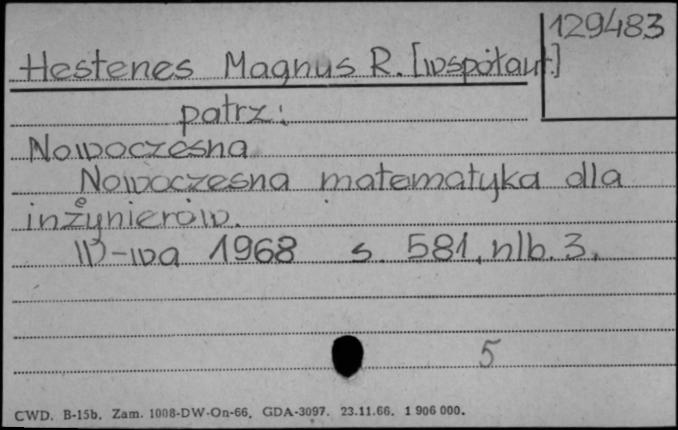 129483
Hestenes Magnus R. [współaut.]
patrz:
Nowoczesna
Nowoczesna matematyka dla
inżynierów.
W-wa 1968 s. 581, nlb. 3.
5
CWD. B-15b. Zam. 1008-DW-On-66. GDA-3097. 23.11.66. 1 906 000.